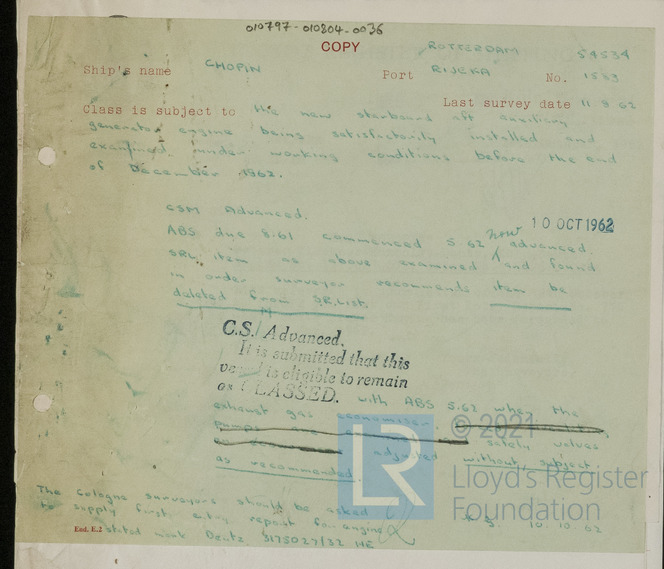 010797-010804-0036
COPY
ROTTERDAM 54534
Ship's name CHOPIN Port RIJEKA No. 1583
Last survey date 11 8 62
Class is subject to the new starboard aft auxiliary
generator engine being satisfactorily installed and
examined under working conditions before the end
of December 1962.
CSM Advanced.
10 OCT 1962
ABS due 8.61 commenced 5.62 now advanced.
SRL item as above examined and found
in order surveyor recommends item be
deleted from SRLIST.
C.S. Advanced.
It is submitted that this
vessel is eligible to remain
CLASSED. with ABS 5.62 when the
exhaust gas economiser
pumps safety valves
adjusted without subject
as recommended.
The Cologne surveyors should be asked
to supply first entry report for engine
End. E.2 stated work Deutz. 3175027/32 HE
10.10.62
LR
© 2021
Lloyd's Register
Foundation